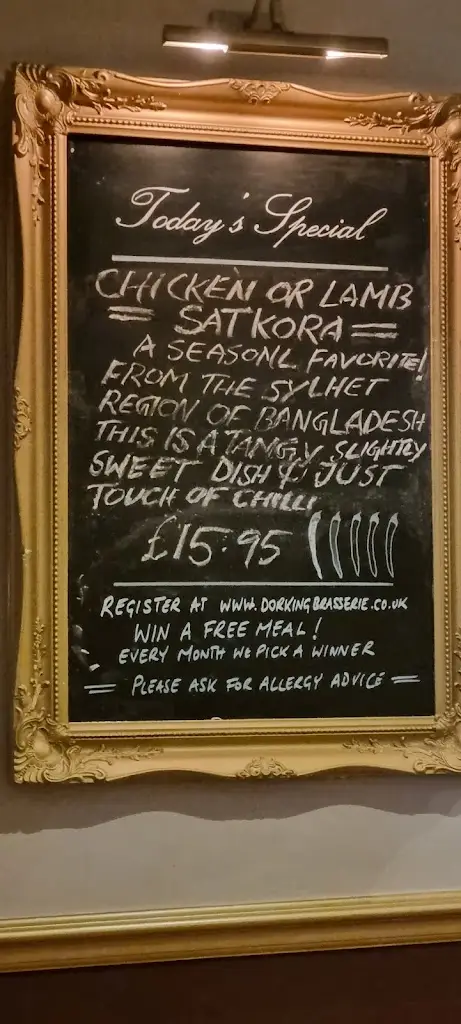 Today's Special
CHICKEN OR LAMB
= SATKORA =
A SEASONL FAVORITE!
FROM THE SYLHET
REGION OF BANGLADESH
THIS IS A TANGY SLIGHTLY
SWEET DISH & JUST
TOUCH OF CHILLI
£15.95
REGISTER AT WWW.DORKINGBRASSERIE.CO.UK
WIN A FREE MEAL!
EVERY MONTH WE PICK A WINNER
= PLEASE ASK FOR ALLERGY ADVICE =